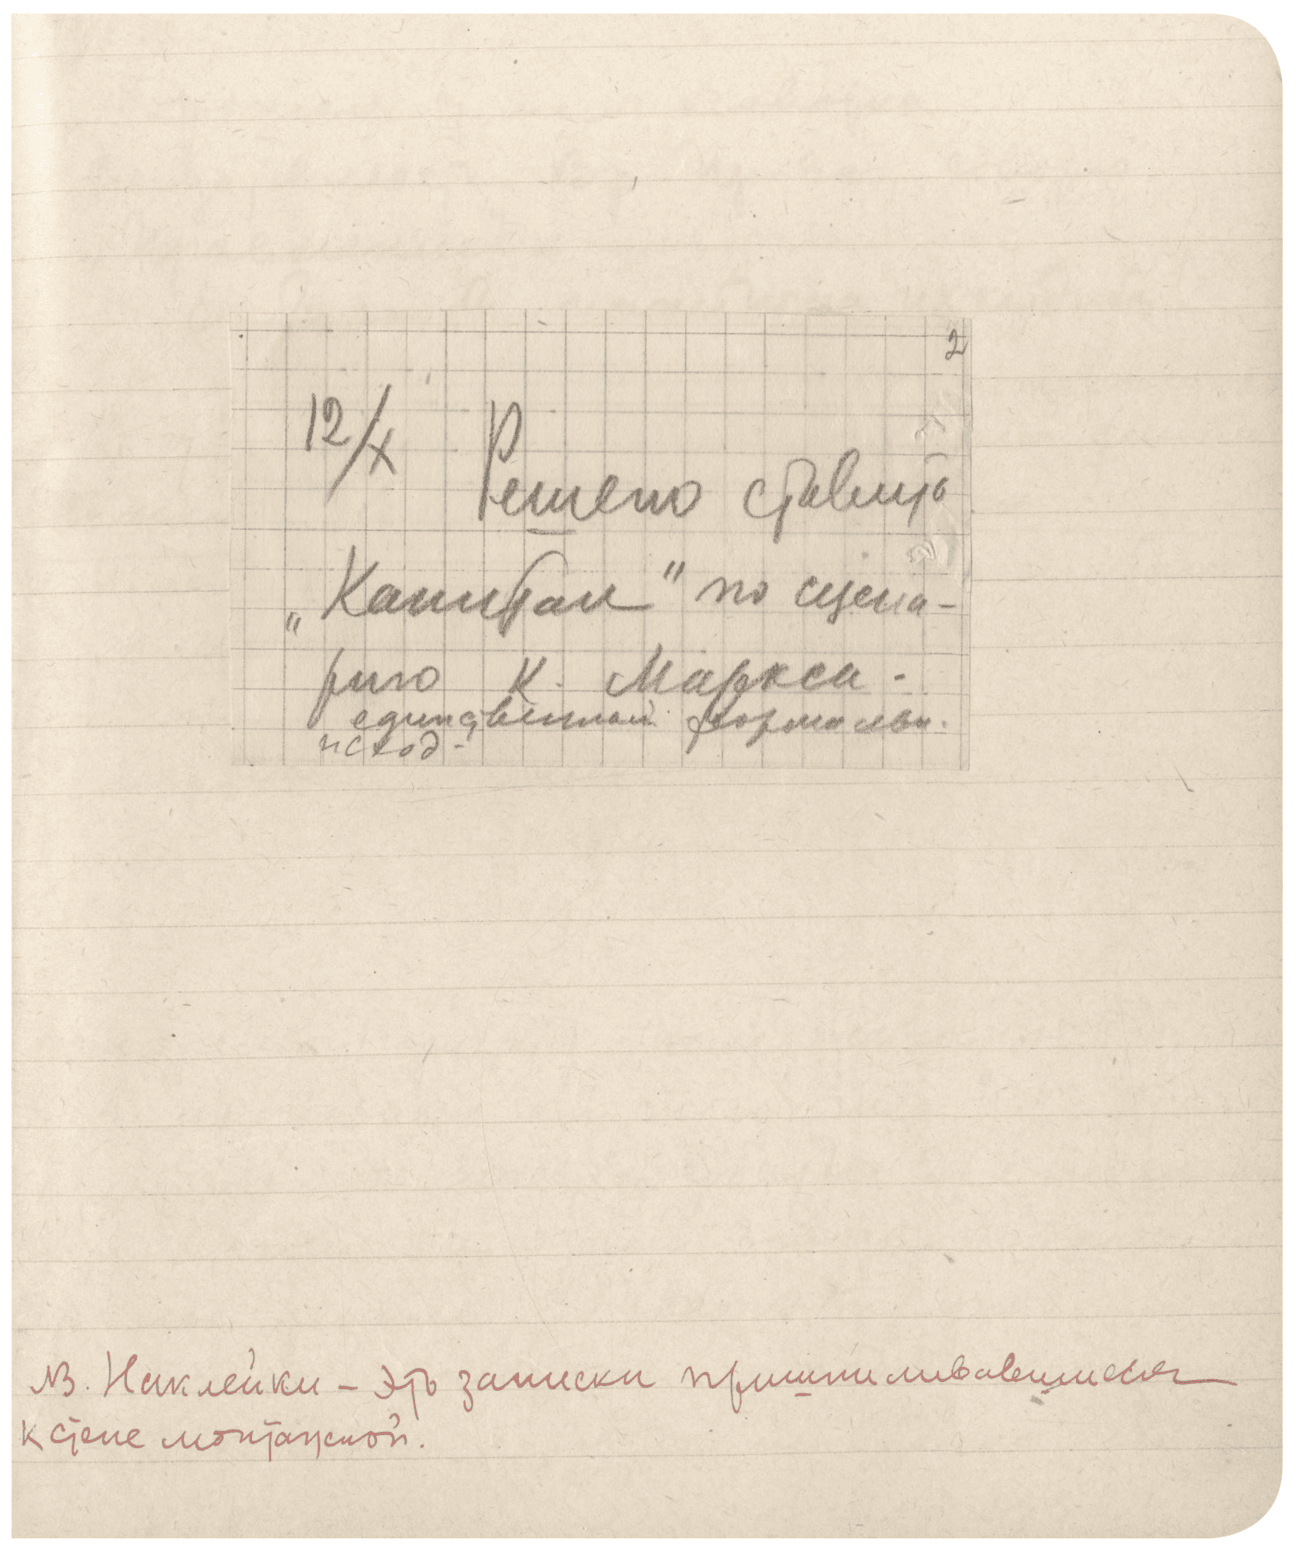 2
12/X Решено ставить
„Капитал" по сцена-
рию К. Маркса -
единственный формальн.
исход -
NB. Наклейки – это записки пришпиливавшиеся
к стене монтажной.